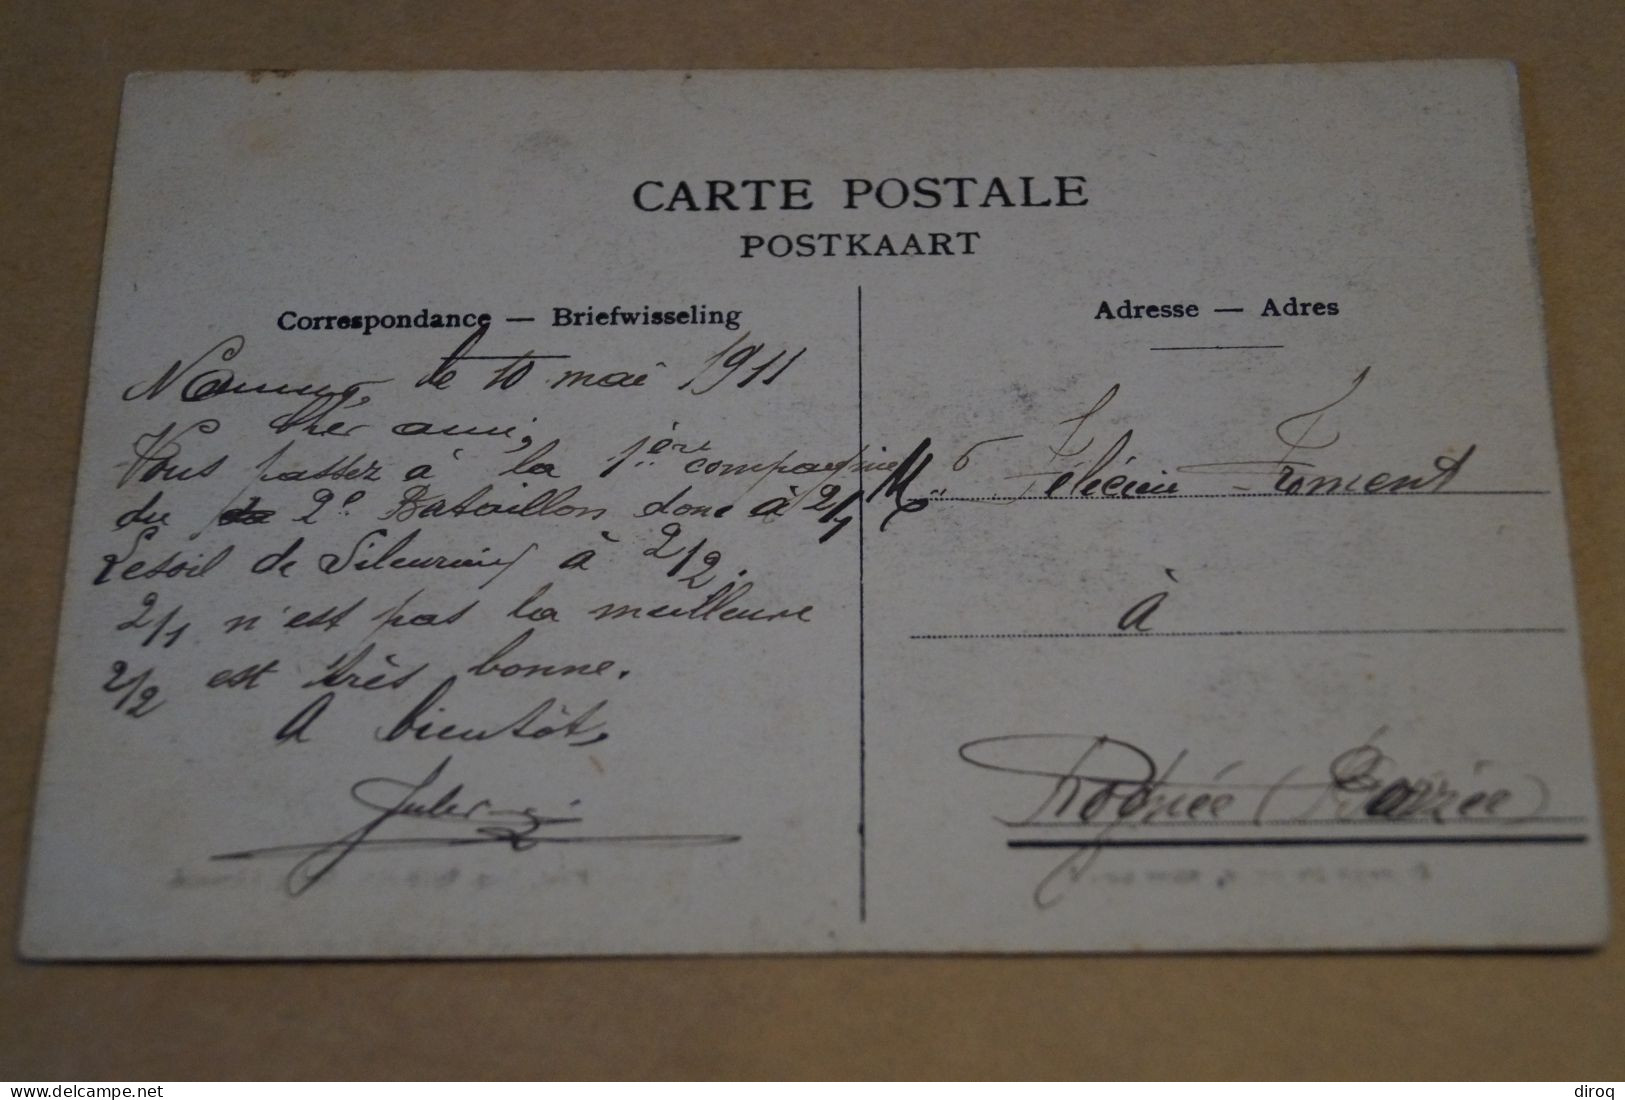 CARTE POSTALE
POSTKAART
Correspondance — Briefwisseling
Namur, le 10 mai 1911
Cher ami,
Vous passez à la 1ère compagnie
du 2e Bataillon donc à 2/1
Lesoil de à 2/2.
2/1 n'est pas la meilleure
2/2 est très bonne.
A bientôt,
Adresse — Adres
Félicien Froment
à
Rognée (
diroq